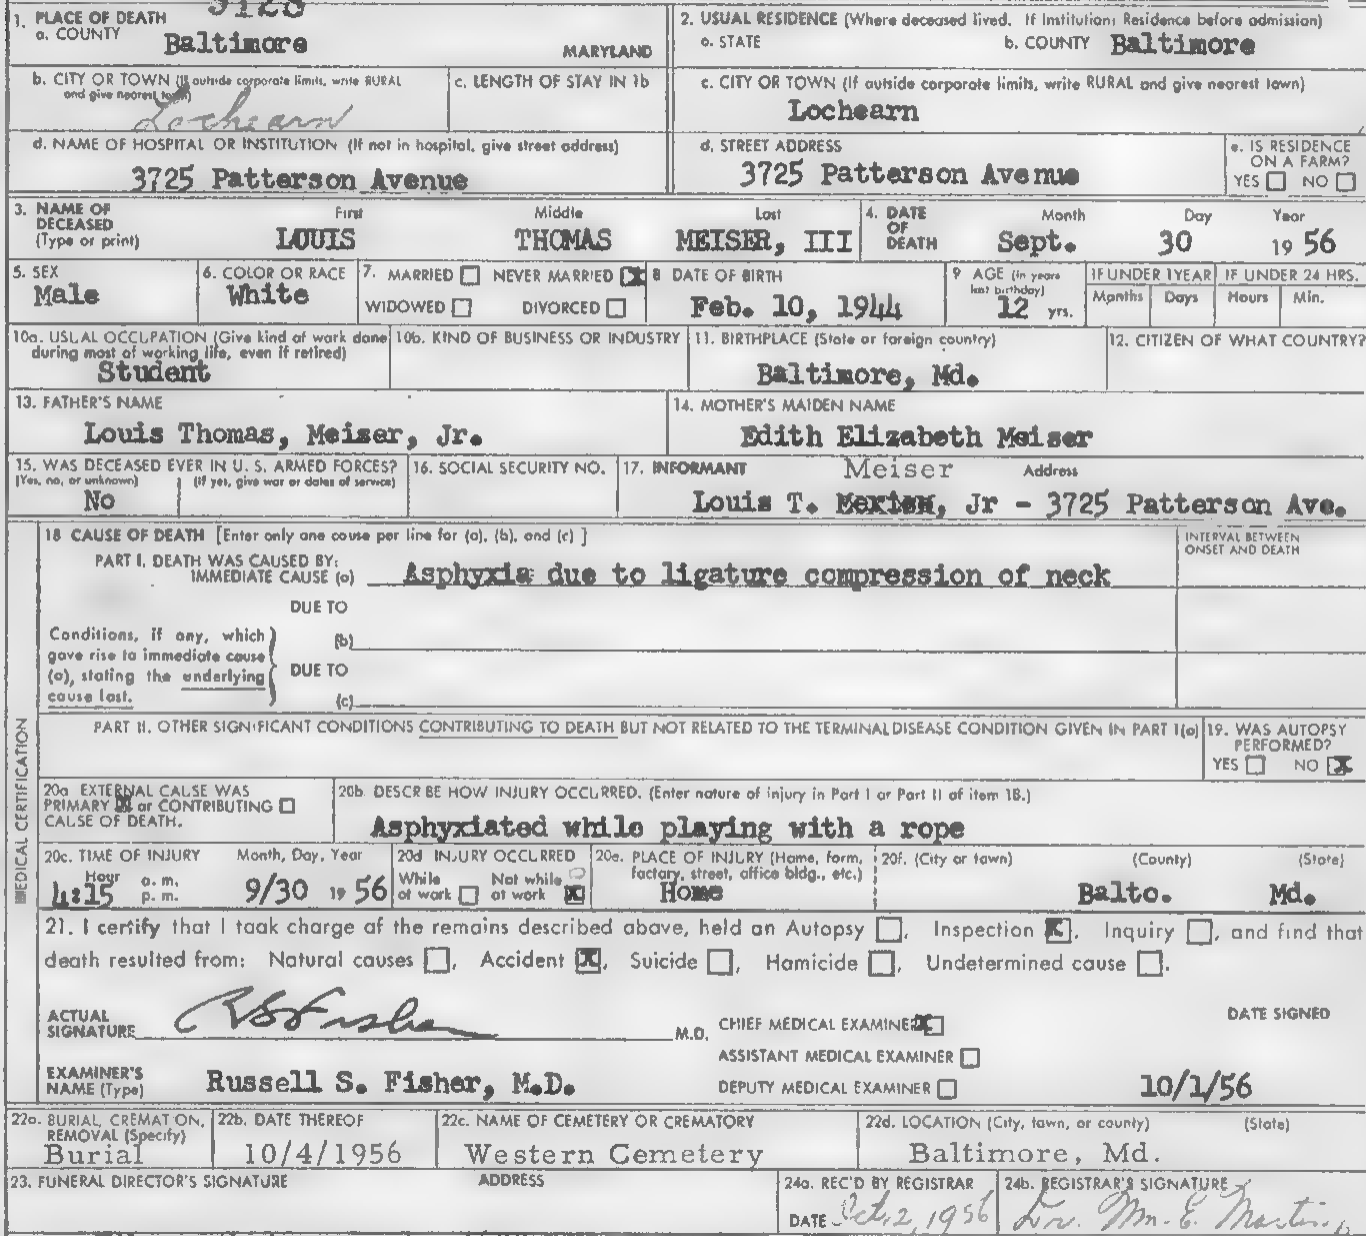 9128
1. PLACE OF DEATH
a. COUNTY Baltimore MARYLAND
2. USUAL RESIDENCE (Where deceased lived. If Institution: Residence before admission)
a. STATE b. COUNTY Baltimore
b. CITY OR TOWN (If outside corporate limits, write RURAL and give nearest town)
Lochearn
c. LENGTH OF STAY IN 1b
c. CITY OR TOWN (If outside corporate limits, write RURAL and give nearest town)
Lochearn
d. NAME OF HOSPITAL OR INSTITUTION (If not in hospital, give street address)
3725 Patterson Avenue
d. STREET ADDRESS
3725 Patterson Avenue
e. IS RESIDENCE ON A FARM?
YES NO
3. NAME OF DECEASED (Type or print)
First Middle Last
LOUIS THOMAS MEISER, III
4. DATE OF DEATH
Month Day Year
Sept. 30 19 56
5. SEX
Male
6. COLOR OR RACE
White
7. MARRIED NEVER MARRIED X
WIDOWED DIVORCED
8 DATE OF BIRTH
Feb. 10, 1944
9 AGE (In years last birthday)
12 yrs.
IF UNDER 1 YEAR
Months Days
IF UNDER 24 HRS.
Hours Min.
10a. USUAL OCCUPATION (Give kind of work done during most of working life, even if retired)
Student
10b. KIND OF BUSINESS OR INDUSTRY
11. BIRTHPLACE (State or foreign country)
Baltimore, Md.
12. CITIZEN OF WHAT COUNTRY?
13. FATHER'S NAME
Louis Thomas, Meiser, Jr.
14. MOTHER'S MAIDEN NAME
Edith Elizabeth Meiser
15. WAS DECEASED EVER IN U. S. ARMED FORCES?
(Yes, no, or unknown) (If yes, give war or dates of service)
No
16. SOCIAL SECURITY NO.
17. INFORMANT Meiser Address
Louis T. Jr - 3725 Patterson Ave.
MEDICAL CERTIFICATION
18 CAUSE OF DEATH [Enter only one cause per line for (a), (b), and (c) ]
INTERVAL BETWEEN ONSET AND DEATH
PART I. DEATH WAS CAUSED BY:
IMMEDIATE CAUSE (a) Asphyxia due to ligature compression of neck
DUE TO
Conditions, if any, which gave rise to immediate cause (a), stating the underlying cause last.
(b)
DUE TO
(c)
PART II. OTHER SIGNIFICANT CONDITIONS CONTRIBUTING TO DEATH BUT NOT RELATED TO THE TERMINAL DISEASE CONDITION GIVEN IN PART I(a)
19. WAS AUTOPSY PERFORMED?
YES NO X
20a EXTERNAL CAUSE WAS
PRIMARY X or CONTRIBUTING
CAUSE OF DEATH.
20b. DESCRIBE HOW INJURY OCCURRED. (Enter nature of injury in Part I or Part II of item 18.)
Asphyxiated while playing with a rope
20c. TIME OF INJURY Month, Day, Year
Hour a. m.
4:15 p. m. 9/30 19 56
20d INJURY OCCURRED
While at work Not while at work X
20e. PLACE OF INJURY (Home, form, factory, street, office bldg., etc.)
Home
20f. (City or town) (County) (State)
Balto. Md.
21. I certify that I took charge of the remains described above, held an Autopsy , Inspection X, Inquiry , and find that
death resulted from: Natural causes , Accident X, Suicide , Homicide , Undetermined cause .
ACTUAL SIGNATURE RS Fisher M.D.
CHIEF MEDICAL EXAMINER X
DATE SIGNED
ASSISTANT MEDICAL EXAMINER
EXAMINER'S NAME (Type) Russell S. Fisher, M.D.
DEPUTY MEDICAL EXAMINER
10/1/56
22a. BURIAL, CREMATION, REMOVAL (Specify)
Burial
22b. DATE THEREOF
10/4/1956
22c. NAME OF CEMETERY OR CREMATORY
Western Cemetery
22d. LOCATION (City, town, or county) (State)
Baltimore, Md.
23. FUNERAL DIRECTOR'S SIGNATURE ADDRESS
24a. REC'D BY REGISTRAR
DATE Oct. 2, 1956
24b. REGISTRAR'S SIGNATURE
Dr. Wm. E. Martin